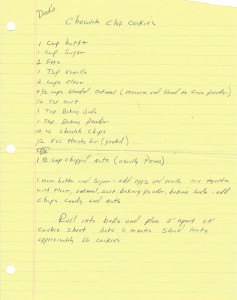 Dad's
Chocolate Chip Cookies
1 Cup butter
1 Cup Sugar
2 Eggs
1 Tsp Vanilla
2 Cups Flour
2 1/2 cups Blended Oatmeal (measure and Blend to fine powder)
1/2 Tsp Salt
1 Tsp Baking Soda
1 Tsp Baking Powder
12 oz chocolate chips
Oz Hershey bar (grated)
1 1/2 cup chopped Nuts (usually Pecans)
Cream butter and Sugar - add eggs and vanilla mix together
with flour, oatmeal, salt, baking powder, baking soda - add
chips, candy, and Nuts
Roll into balls and place 2" apart on
cookie sheet bake 6 minutes should make
approximately cookies